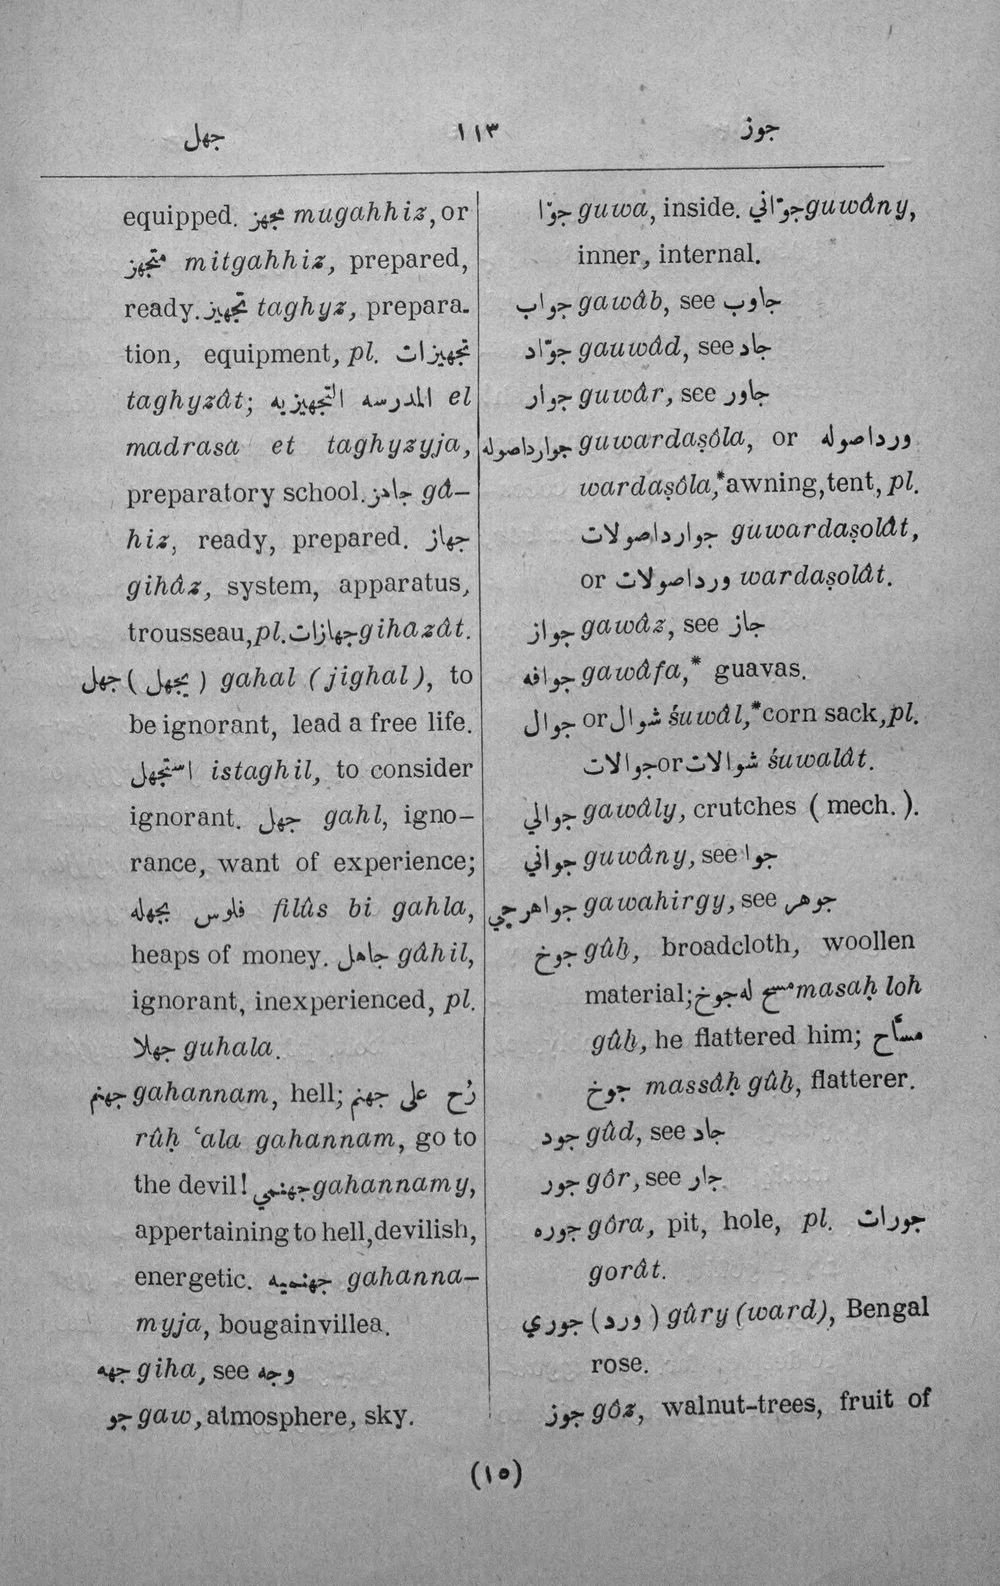 جهل ١١٣ جوز
equipped. مجهز mugahhiz, or
متجهز mitgahhiz, prepared,
ready. تجهيز taghyz, prepara-
tion, equipment, pl. تجهيزات
taghyzât; المدرسه التجهيزيه el
madrasa et taghyzyja,
preparatory school. جاهز gâ-
hiz, ready, prepared. جهاز
gihâz, system, apparatus,
trousseau, pl. جهازات gihazât.
جهل (يجهل) gahal (jighal), to
be ignorant, lead a free life.
استجهل istaghil, to consider
ignorant. جهل gahl, igno-
rance, want of experience;
فلوس بجهله filûs bi gahla,
heaps of money. جاهل gâhil,
ignorant, inexperienced, pl.
جهلا guhala.
جهنم gahannam, hell; رُح على جهنم
rûḥ ʿala gahannam, go to
the devil! جهنمي gahannamy,
appertaining to hell, devilish,
energetic. جهنميه gahanna-
myja, bougainvillea.
جهه giha, see وجه
جو gaw, atmosphere, sky.
جوّا guwa, inside. جوّاني guwâny,
inner, internal.
جواب gawâb, see جاوب
جوّاد gauwâd, see جاد
جوار guwâr, see جاور
جوارداصوله guwardaṣôla, or ورداصوله
wardaṣôla,* awning, tent, pl.
جوارداصولات guwardaṣolât,
or ورداصولات wardaṣolât.
جواز gawâz, see جاز
جوافه gawâfa,* guavas.
جوال or شوال śuwâl,* corn sack, pl.
جوالات or شوالات śuwalât.
جوالي gawâly, crutches (mech.).
جواني guwâny, see جوا
جواهرجي gawahirgy, see جوهر
جوخ gûḫ, broadcloth, woollen
material; مسح له جوخ masaḥ loh
gûḫ, he flattered him; مسّاح
جوخ massâḥ gûḫ, flatterer.
جود gûd, see جاد
جور gôr, see جار
جوره gôra, pit, hole, pl. جورات
gorât.
جوري (ورد) gûry (ward), Bengal
rose.
جوز gôz, walnut-trees, fruit of
(١٥)